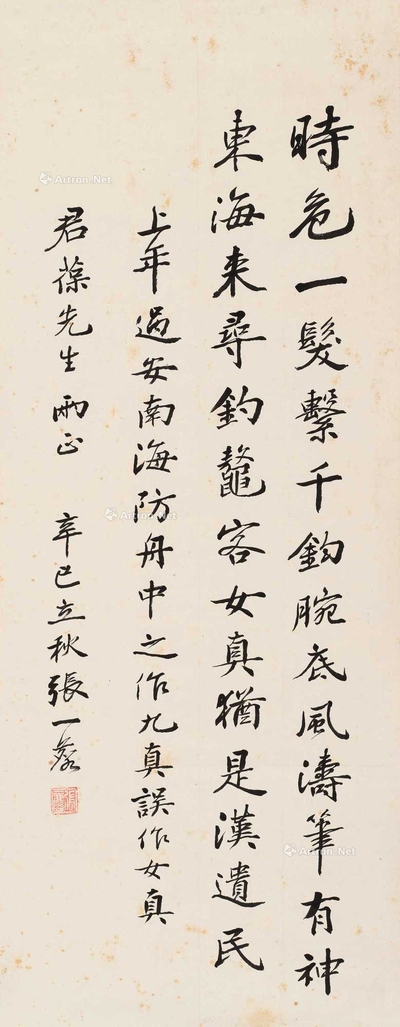 時危一髮繫千鈞腕底風濤筆有神
東海來尋釣鼇客女真猶是漢遺民
上年過安南海防舟中之作九真誤作女真
君葆先生兩正 辛巳立秋張一麐
Artron.Net
Artron.Net
Artron.Net
Artron.Net